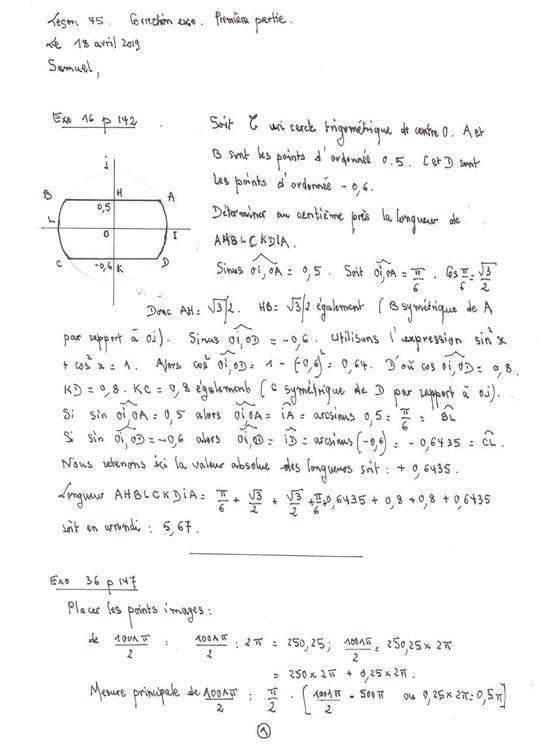 Leçon 45. Correction exo. Première partie.
Le 18 avril 2019
Samuel,
Exo 16 p 142.
Soit C un cercle trigométrique de centre O. A et
B sont les points d'ordonnée 0.5. C et D sont
les points d'ordonnée -0,6.
Déterminer au centième près la longueur de
AHBLCKDIA.
j
B H A
0,5
L O I
C -0,6 K D
Sinus Oi,OA = 0,5. Soit Oi,OA = π/6. Cos π/6 = √3/2
Donc AH = √3/2. HB = √3/2 également (B symétrique de A
par rapport à Oj). Sinus Oi,OD = -0,6. Utilisons l'expression sin² x
+ cos² x = 1. Alors cos² Oi,OD = 1 - (-0,6)² = 0,64. D'où cos Oi,OD = 0,8.
KD = 0,8. KC = 0,8 également (C symétrique de D par rapport à Oj).
Si sin Oi,OA = 0,5 alors Oi,OA = iA = arcsinus 0,5 = π/6 = BL
Si sin Oi,OD = -0,6 alors Oi,OD = iD = arcsinus (-0,6) = -0,6435 = CL.
Nous retenons ici la valeur absolue des longueurs soit : +0,6435.
Longueur AHBLCKDiA = π/6 + √3/2 + √3/2 + π/6 + 0,6435 + 0,8 + 0,8 + 0,6435
soit en arrondi : 5,67.
Exo 36 p 147
Placer les points images :
de 1001π/2 : 1001π/2 : 2π = 250,25 ; 1001π/2 = 250,25 x 2π
= 250 x 2π + 0,25 x 2π.
Mesure principale de 1001π/2 : π/2 . [1001π/2 - 500π ou 0,25 x 2π = 0,5π]
1